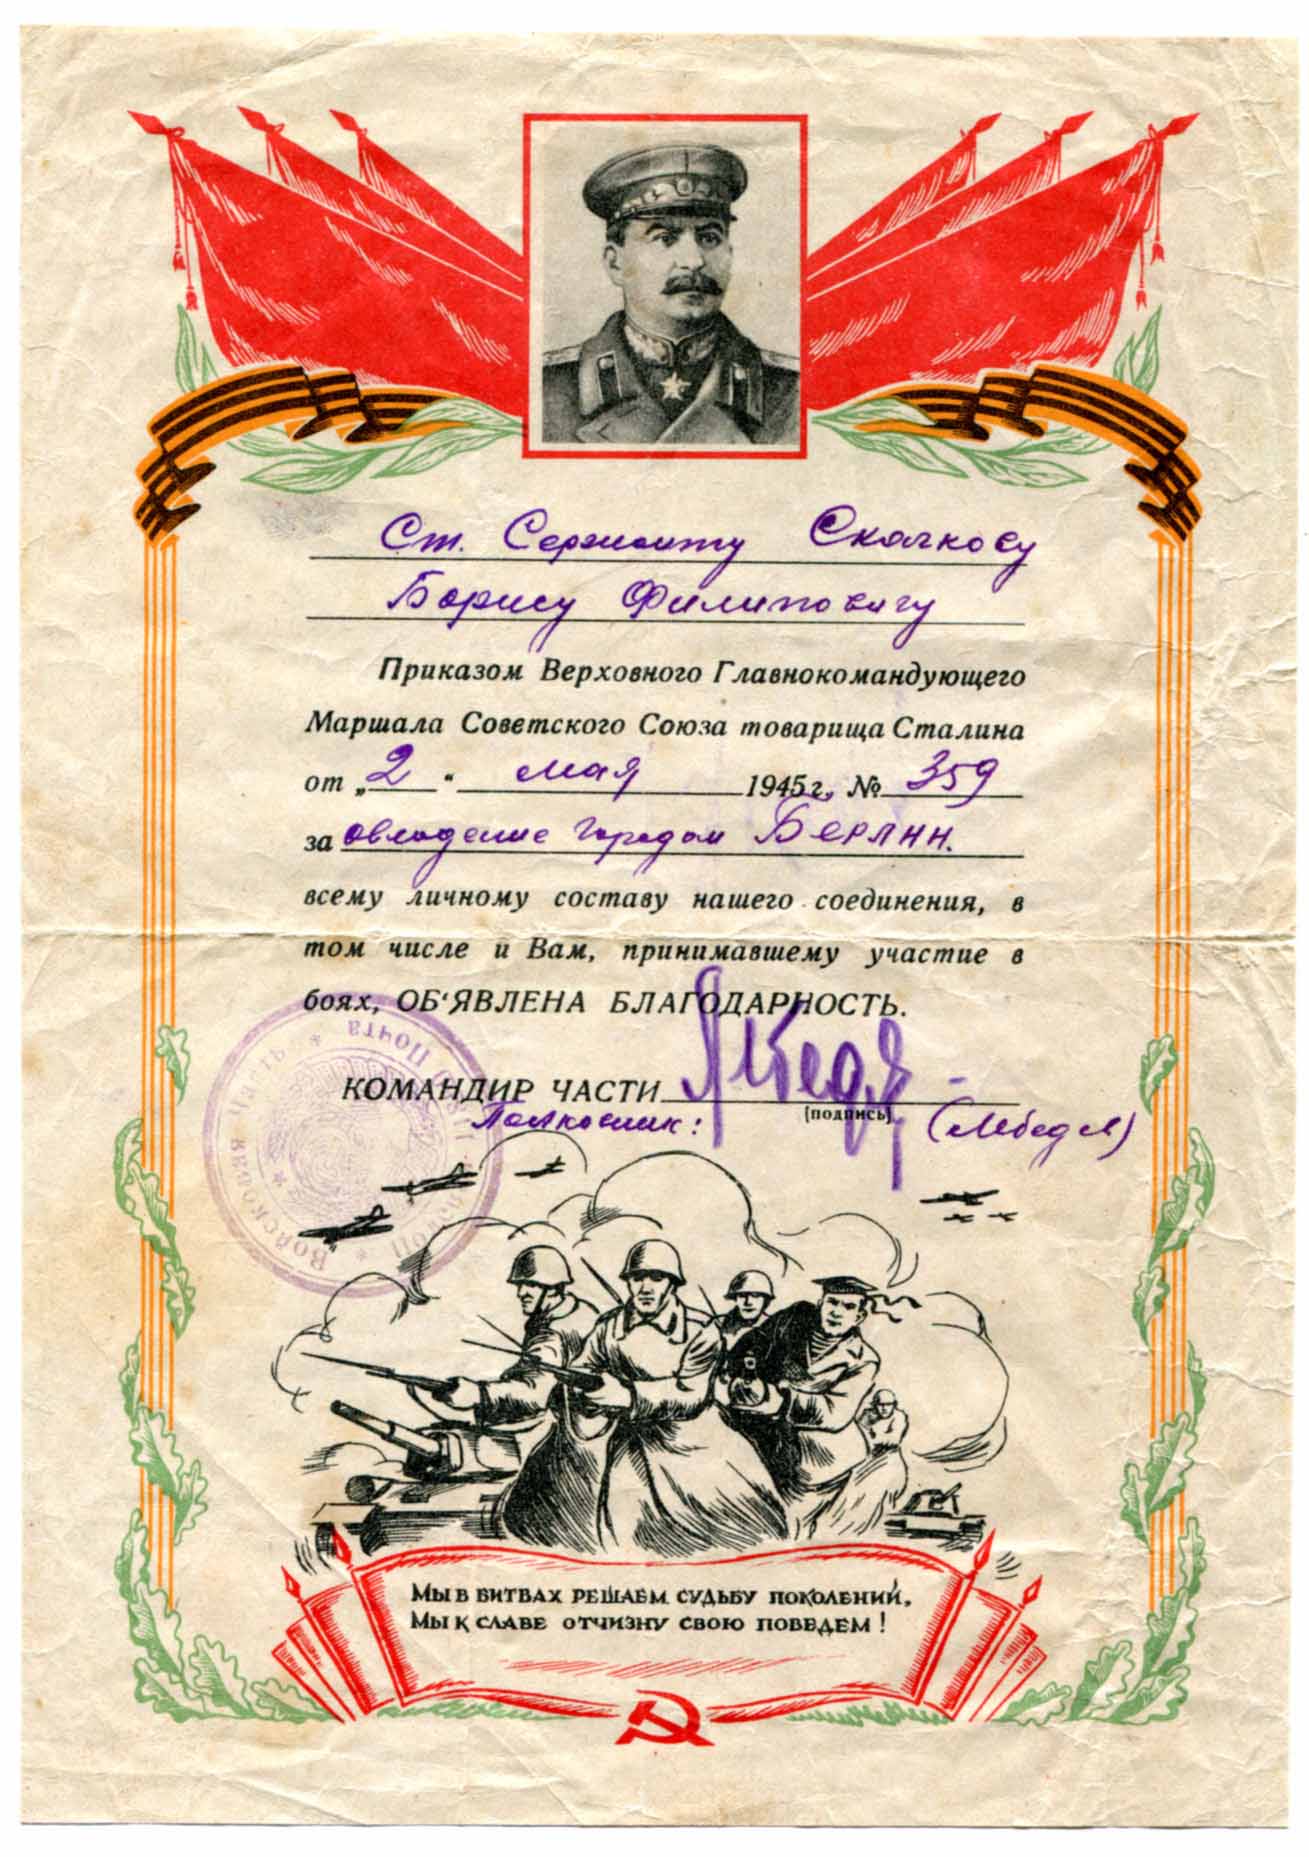 Ст. Сержанту Скачкову
Борису Филиповичу
Приказом Верховного Главнокомандующего
Маршала Советского Союза товарища Сталина
от „2“ мая 1945 г. № 359
за овладение городом Берлин.
всему личному составу нашего соединения, в
том числе и Вам, принимавшему участие в
боях, ОБ'ЯВЛЕНА БЛАГОДАРНОСТЬ.
КОМАНДИР ЧАСТИ
(подпись)
Полковник: (Лебедь)
Войсковая часть * Полевая Почта *
МЫ В БИТВАХ РЕШАЕМ СУДЬБУ ПОКОЛЕНИЙ,
МЫ К СЛАВЕ ОТЧИЗНУ СВОЮ ПОВЕДЕМ!